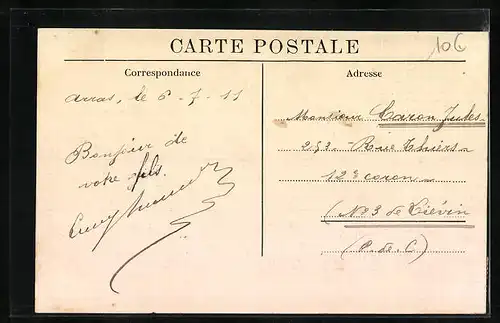 10€
CARTE POSTALE
Correspondance
Adresse
Arras, le 6-7-11
Bonjour de
votre fils.
Monsieur Caron Jules
293 Rue Thiers
12e coron
(No 3 de Liévin
(P. de C.)